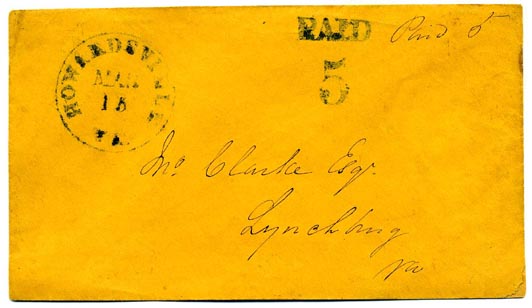 PAID Paid 5
5
HOWARDSVILLE
MAR
15
VA.
Jno Clarke Esqr.
Lynchburg
Va